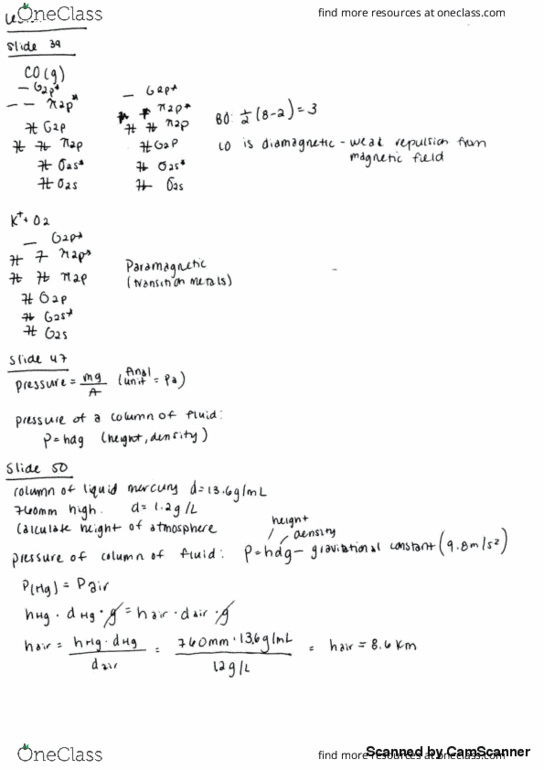 OneClass
find more resources at oneclass.com
Slide 39
CO(g)
— σ2p* — σ2p*
— — π2p* π2p*
σ2p π2p BO: 1/2 (8-2) = 3
π2p σ2p CO is diamagnetic - weak repulsion from
magnetic field
σ2s* σ2s*
σ2s σ2s
K+ O2
— σ2p*
π2p*
π2p Paramagnetic
(transition metals)
σ2p
σ2s*
σ2s
Slide 47
pressure = mg/A (final unit = Pa)
pressure of a column of fluid:
P=hdg (height, density)
Slide 50
column of liquid mercury d=13.6g/mL
760mm high. d= 1.2g/L
Calculate height of atmosphere
height
density
pressure of column of fluid: P=hdg - gravitational constant (9.8m/s²)
P(Hg) = Pair
hHg · dHg · g = hair · dair · g
hair = hHg · dHg / dair = 760mm · 13.6g/mL / 1.2g/L = hair = 8.6 km
OneClass
find more resources at oneclass.com
Scanned by CamScanner